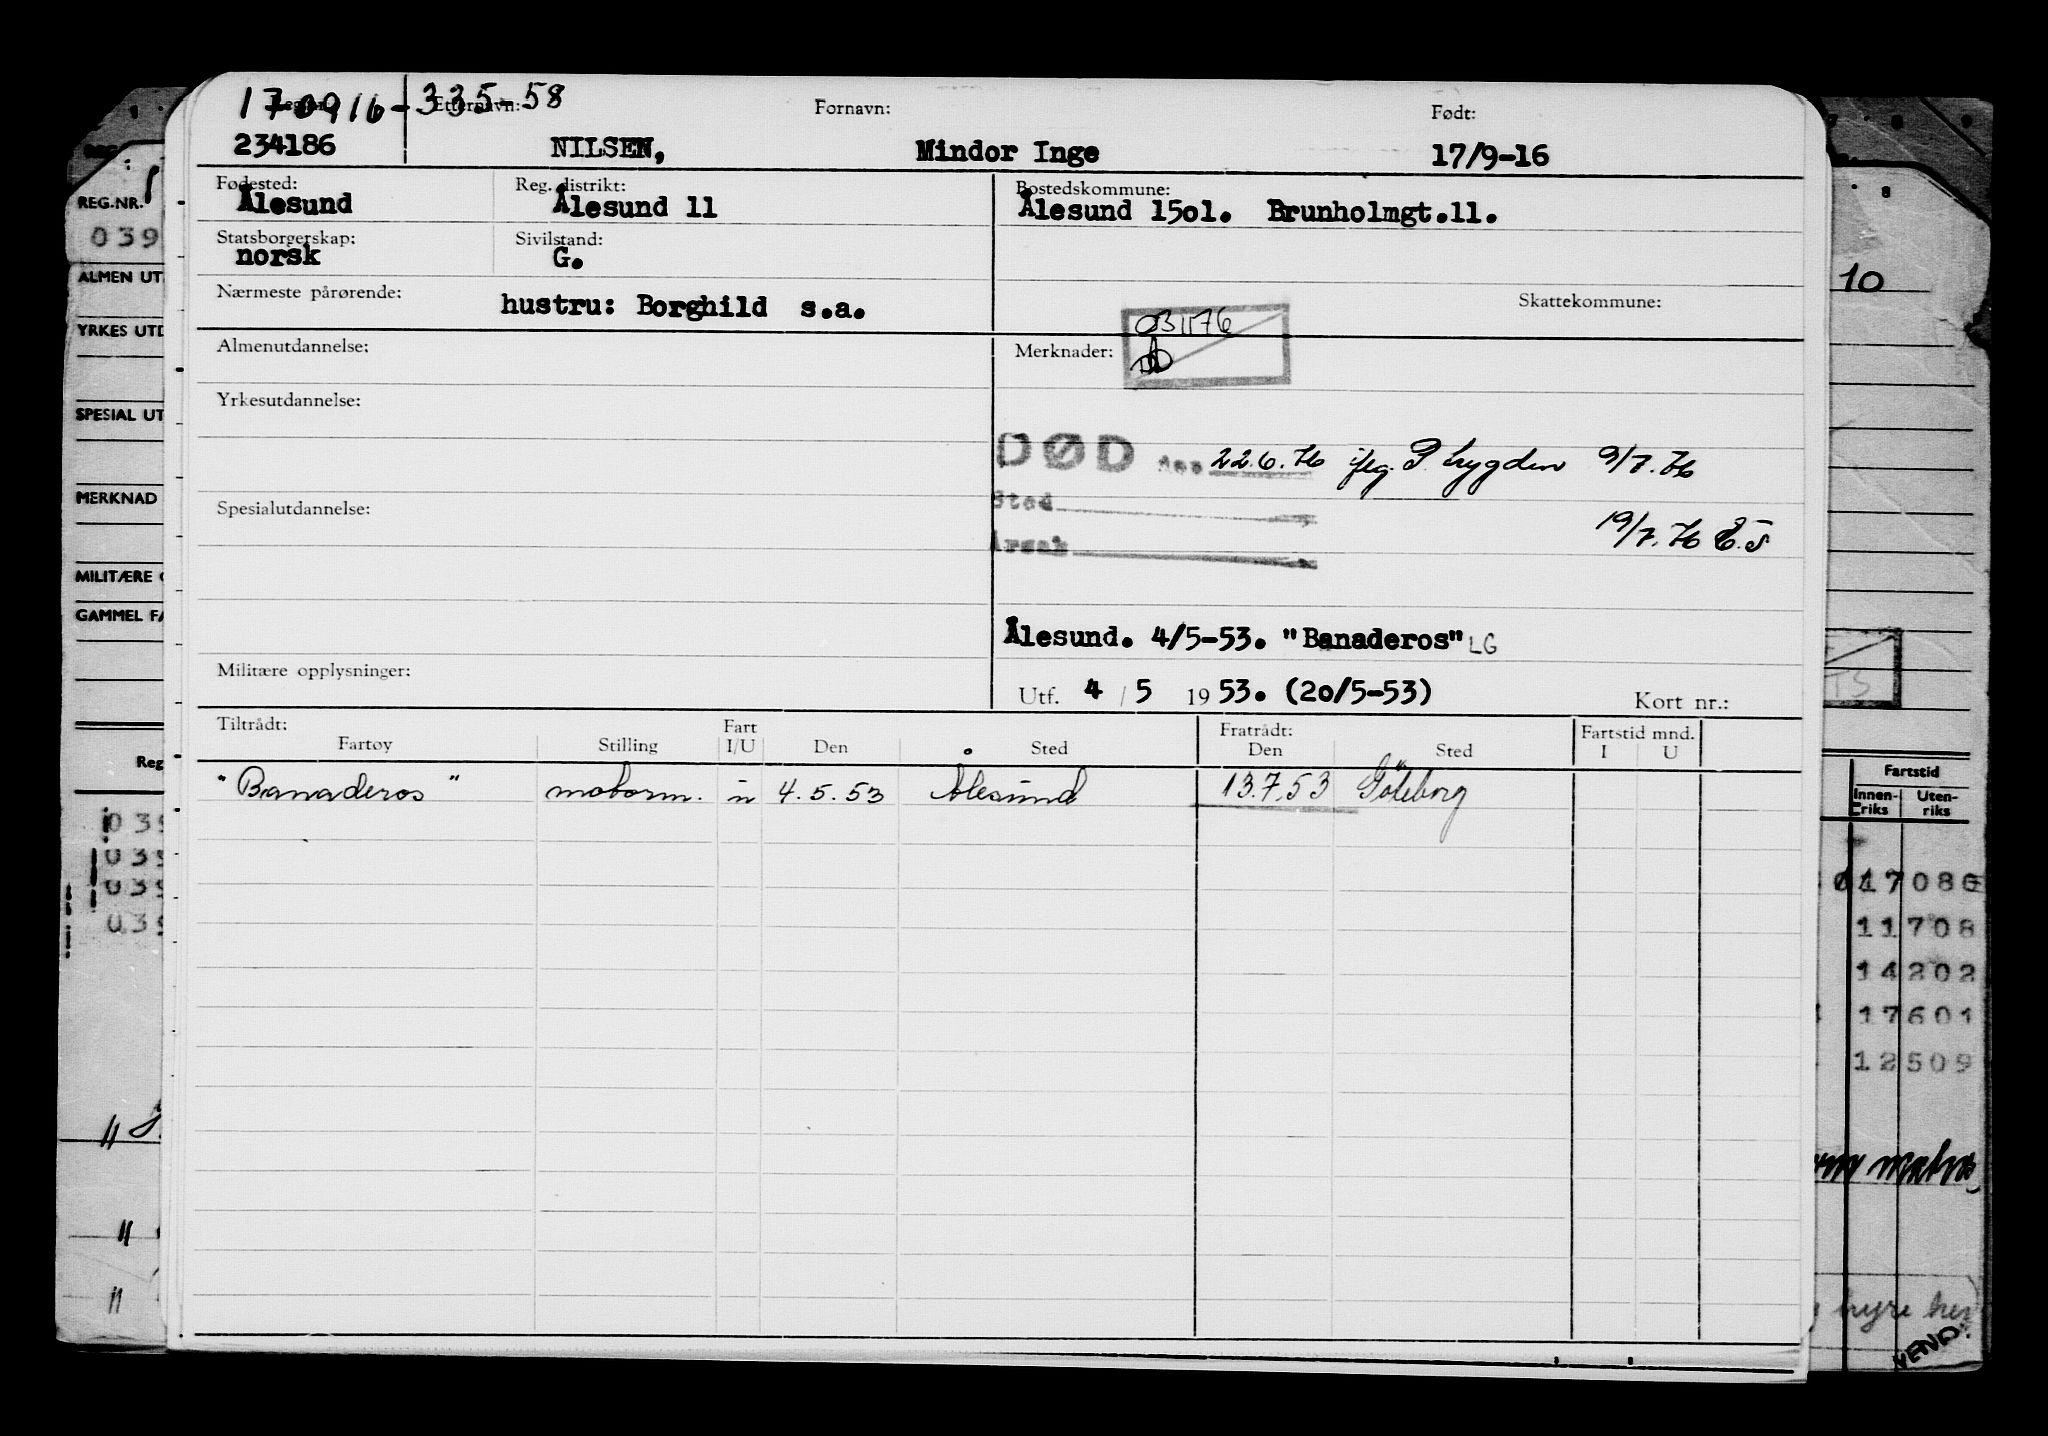 170916-335-58
Etternavn: Fornavn: Født:
234186 NILSEN, Mindor Inge 17/9-16
Fødested: Reg. distrikt: Bostedskommune:
Ålesund Ålesund 11 Ålesund 15o1. Brunholmgt.11.
Statsborgerskap: Sivilstand:
norsk G.
Nærmeste pårørende: Skattekommune:
hustru: Borghild s.a.
031176
Almenutdannelse: Merknader:
Yrkesutdannelse:
DØD 22.6.76 P. Lygden 9/7.76
Sted
Spesialutdannelse:
19/7.76 E.S
Årsak
Ålesund. 4/5-53. "Banaderos" LG
Militære opplysninger:
Utf. 4 / 5 19 53. (20/5-53) Kort nr.:
Tiltrådt: Fart Fratrådt: Fartstid mnd.
Fartøy Stilling I/U Den Sted Den Sted I U
"Banaderos" motorm. u 4.5.53 Ålesund 13.7.53 Göteborg
REG.NR.
039
ALMEN UT
YRKES UTD
SPESIAL UT
MERKNAD
MILITÆRE
GAMMEL FA
Reg
039
039
039
039
10
Fartstid
Innen- Uten-
riks riks
11708
14202
17601
12509
hyre
VEND.